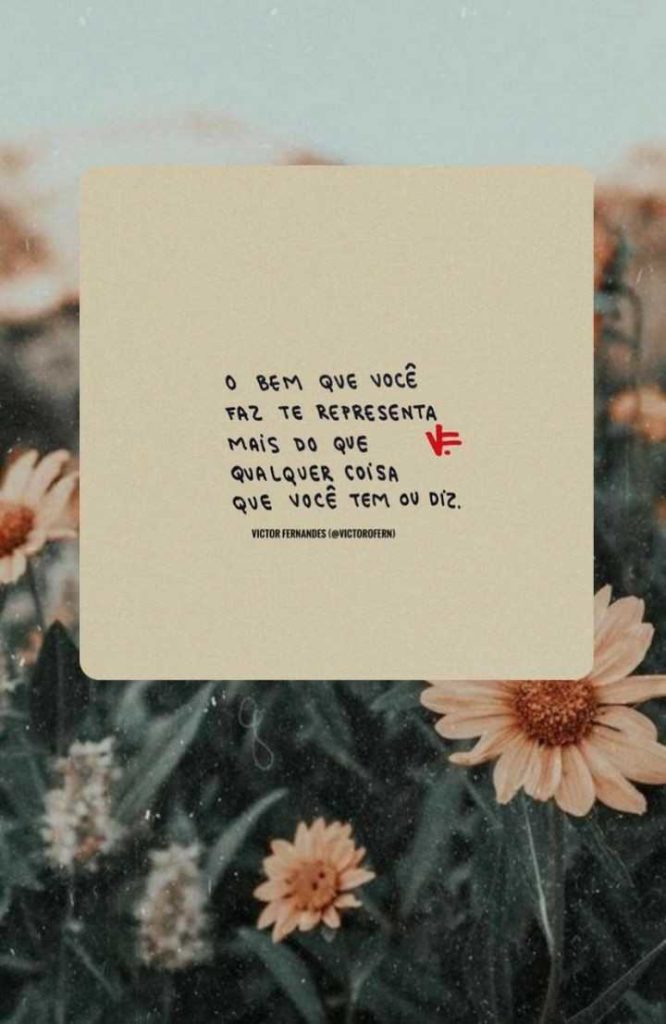 O BEM QUE VOCÊ
FAZ TE REPRESENTA
MAIS DO QUE
QUALQUER COISA
QUE VOCÊ TEM OU DIZ.
VF.
VICTOR FERNANDES (@VICTOROFERN)